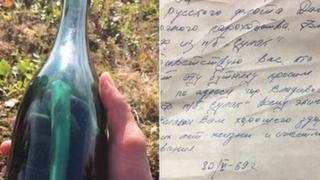 Русского флота Дал
очного пароходства.
из п/б "Сулак"
ветствую Вас, кто
т эту бутылку просим
по адресу гор. Владиво
п/б "Сулак" всему экип
Вам хорошего здо
лет жизни и счастли
вания
20/VI-69 г